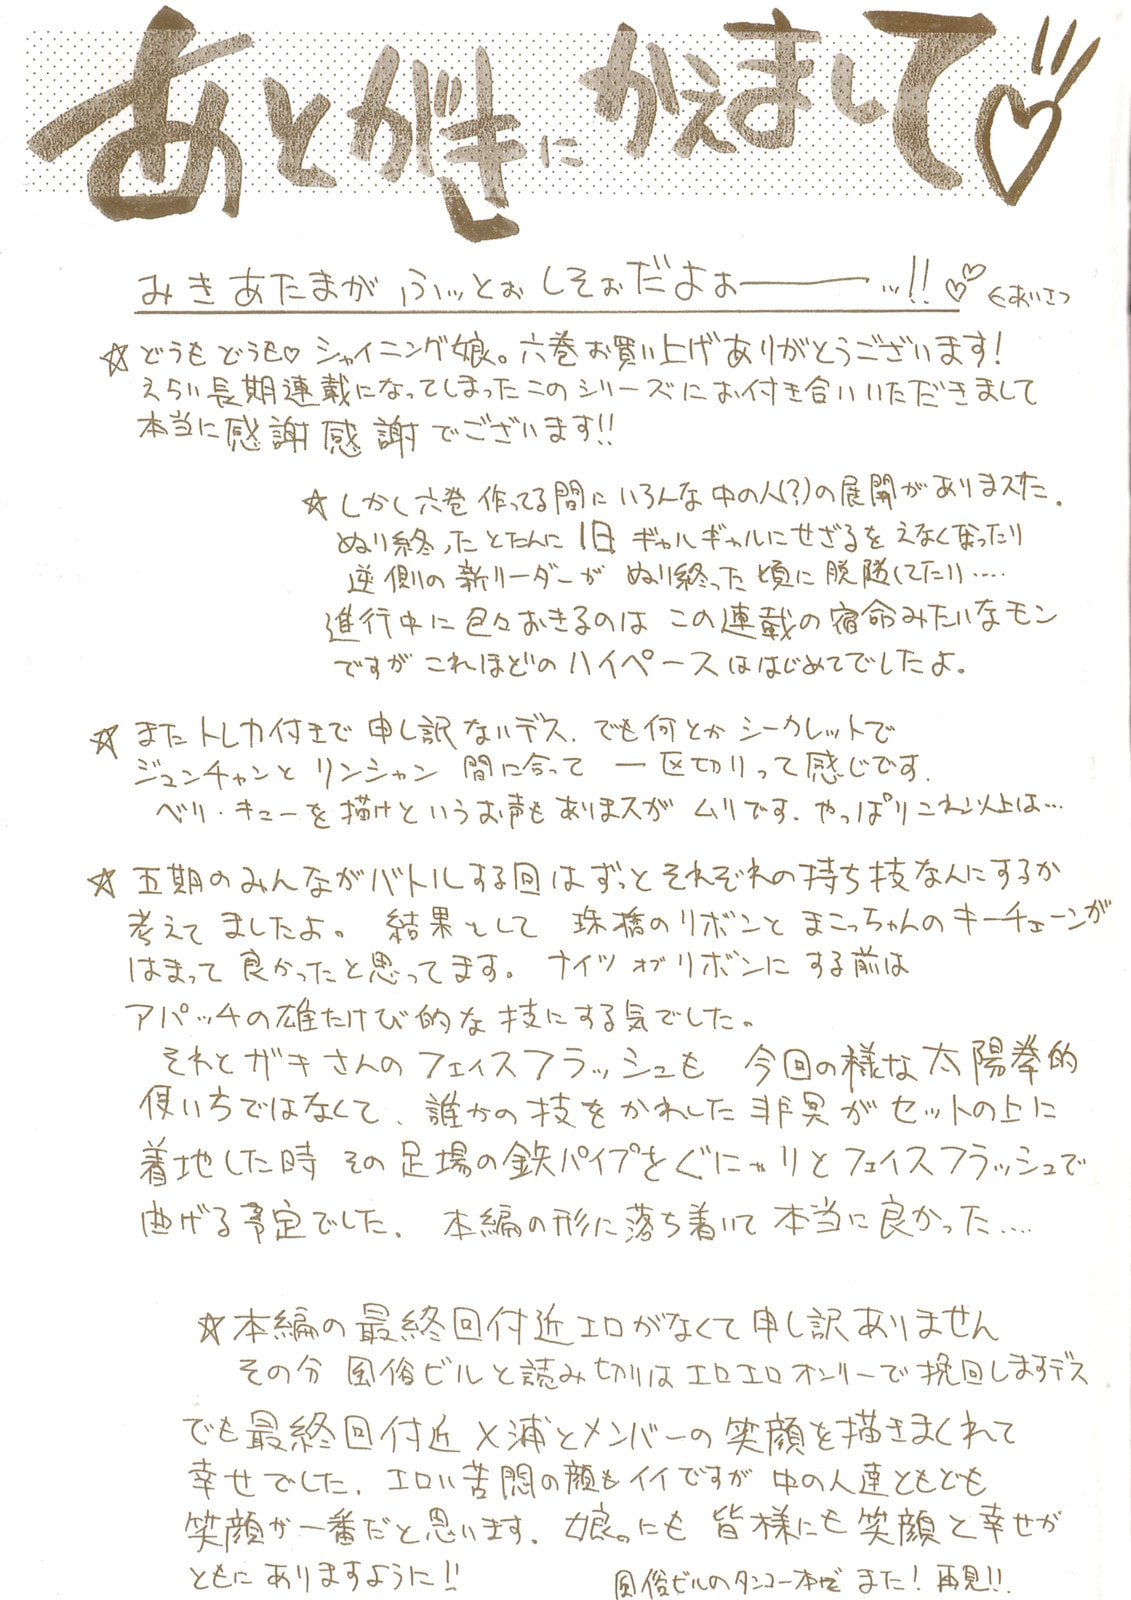 あとがきにかえまして♡
みきあたまが ふぃっとぉ しそぉだよぉ――――…!!♡♡ ←あいさつ
☆どうもどうも♡シャイニング娘。六巻お買い上げありがとうございます!
えらい長期連載になってしまったこのシリーズにお付き合いいただきまして
本当に感謝感謝でございます!!
☆しかし六巻作ってる間にいろんな中の人(?)の展開がありまスた.
ぬり終ったとたんに1日ギャルギャルにせざるをえなくなったり
逆側の新リーダーが ぬり終った頃に脱隊してたり....
進行中に色々おきるのは この連載の宿命みたいなモン
ですが これほどのハイペースははじめてでしたよ。
☆またトレカ付きで申し訳ないデス. でも何とかシークレットで
ジュンチャンとリンシャン 間に合って 一区切りって感じです.
ベリ・キューを描けというお声もありまスが ムリです. やっぱりこれ以上は…
☆五期のみんながバトルする回はずっとそれぞれの持ち技なんにするか
考えてましたよ。 結果として 珠橋のリボンとまこっちゃんのキーチェーンが
はまって良かったと思ってます。 ナイツオブリボンにする前は
アパッチの雄たけび的な技にする気でした。
それとガキさんのフェイスフラッシュも 今回の様な太陽拳的
使いちではなくて、誰かの技をかわした非冥がセットの上に
着地した時 その足場の鉄パイプをぐにゃりとフェイスフラッシュで
曲げる予定でした. 本編の形に落ち着いて本当に良かった....
☆本編の最終回付近エロがなくて申し訳ありません
その分 風俗ビルと読み切りはエロエロオンリーで挽回しますデス
でも最終回付近メ浦とメンバーの笑顔を描きまくれて
幸せでした. エロい苦悶の顔もイイですが 中の人達ともども
笑顔が一番だと思います. 娘。にも 皆様にも笑顔と幸せが
ともにありますように!!
風俗ビルのタンコー本でまた! 再見!!.